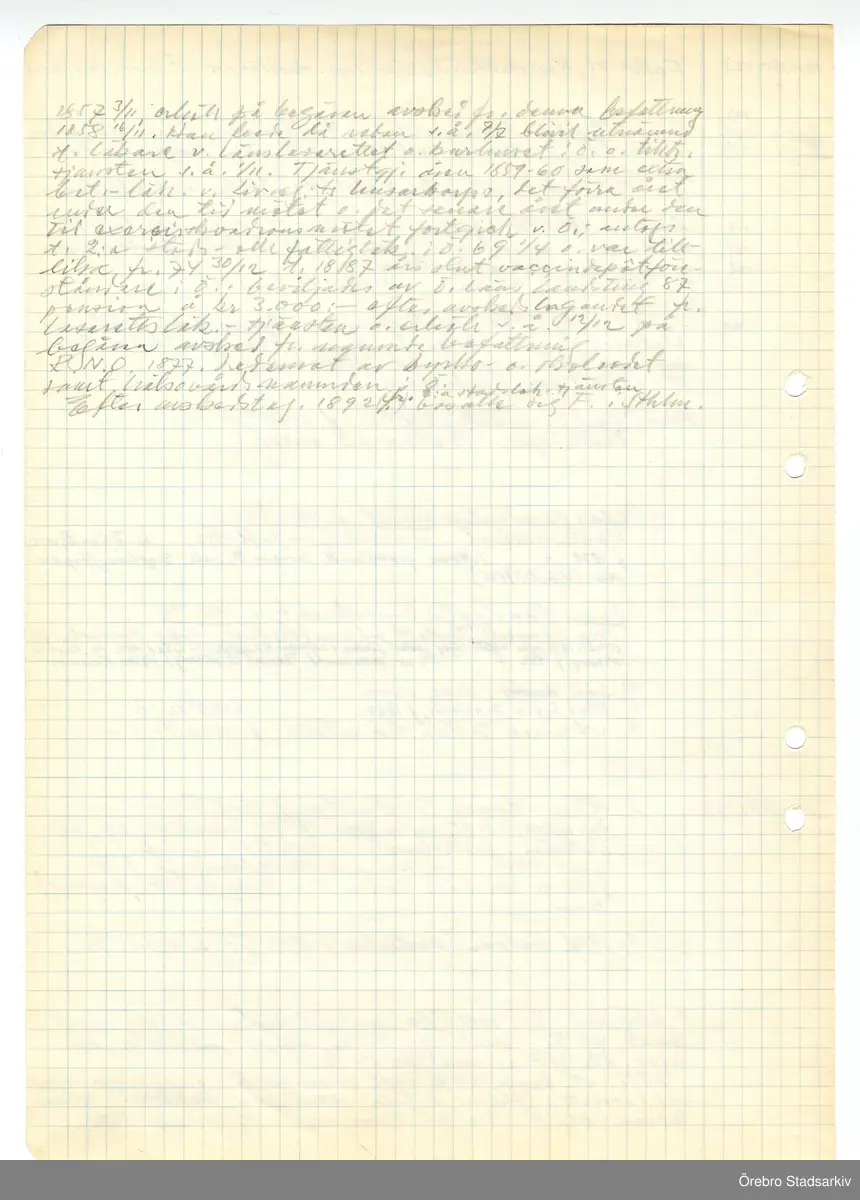 1857 3/11; erhöll på begäran avsked fr. denna befattning
1858 16/11. Han hade då redan s.å. 7/7 blivit utnämnd
t. läkare v. länslasarettet o. kurhuset i Ö. o. tilltr.
tjänsten s.å. 1/11. Tjänstgj. åren 1859-60 som extra
bat.-läk. v. Livreg:ts husarkorps, det förra året
under den tid mötet o. det senare året under den
tid exercisskvadronsmötet fortgick v. Ö.; antogs
t. 2:a stads- o. fattigläk. i Ö. 69 1/4 o. var till-
lika fr. 74 30/12 t. 1887 års slut vaccindepôtföre-
ståndare i Ö.; beviljades av Ö. läns landsting 87
pension à kr 3.000:- efter avskedstagandet fr.
lasarettsläk.-tjänsten o. erhöll s.å. 12/12 på
begäran avsked fr. nämnda befattning
R.N.O. 1877. Ledamot av kyrko- o. skolrådet
samt hälsovårdsnämnden i Ö.
Efter avskedstag. 1892 fr. 2:a stadsläk.-tjänsten bosatte sig F. i Sthlm.
Örebro Stadsarkiv